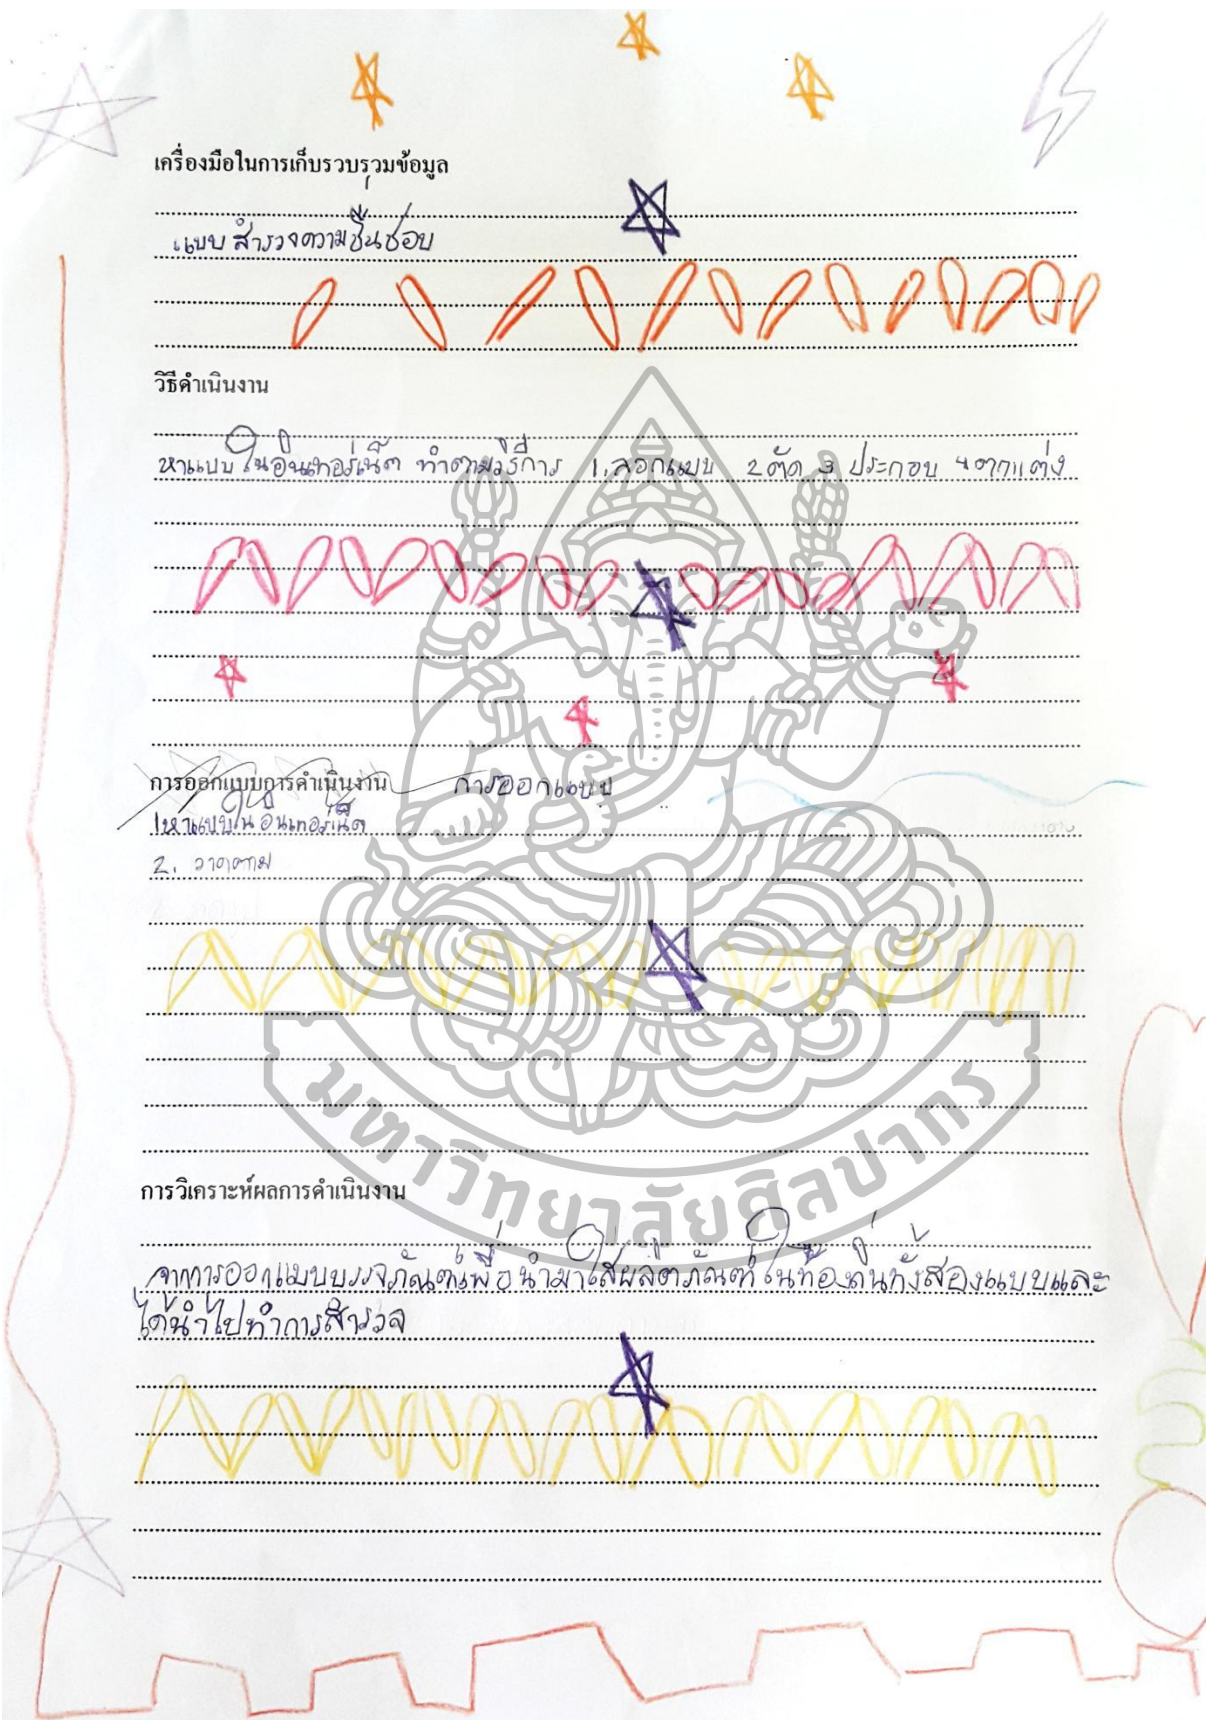 เครื่องมือในการเก็บรวบรวมข้อมูล
แบบสำรวจความชื่นชอบ
วิธีดำเนินงาน
หาแบบในอินเทอร์เน็ต ทำตามวิธีการ 1.ลอกแบบ 2ตัด 3 ประกอบ 4ตกแต่ง
การออกแบบการดำเนินงาน การออกแบบ
1.หาแบบในอินเทอร์เน็ต
2. วาดตาม
มหาวิทยาลัยศิลปากร
การวิเคราะห์ผลการดำเนินงาน
จากการออกแบบบรรจุภัณฑ์เพื่อนำมาใส่ผลิตภัณฑ์ในท้องถิ่นทั้งสองแบบและ
ได้นำไปทำการสำรวจ